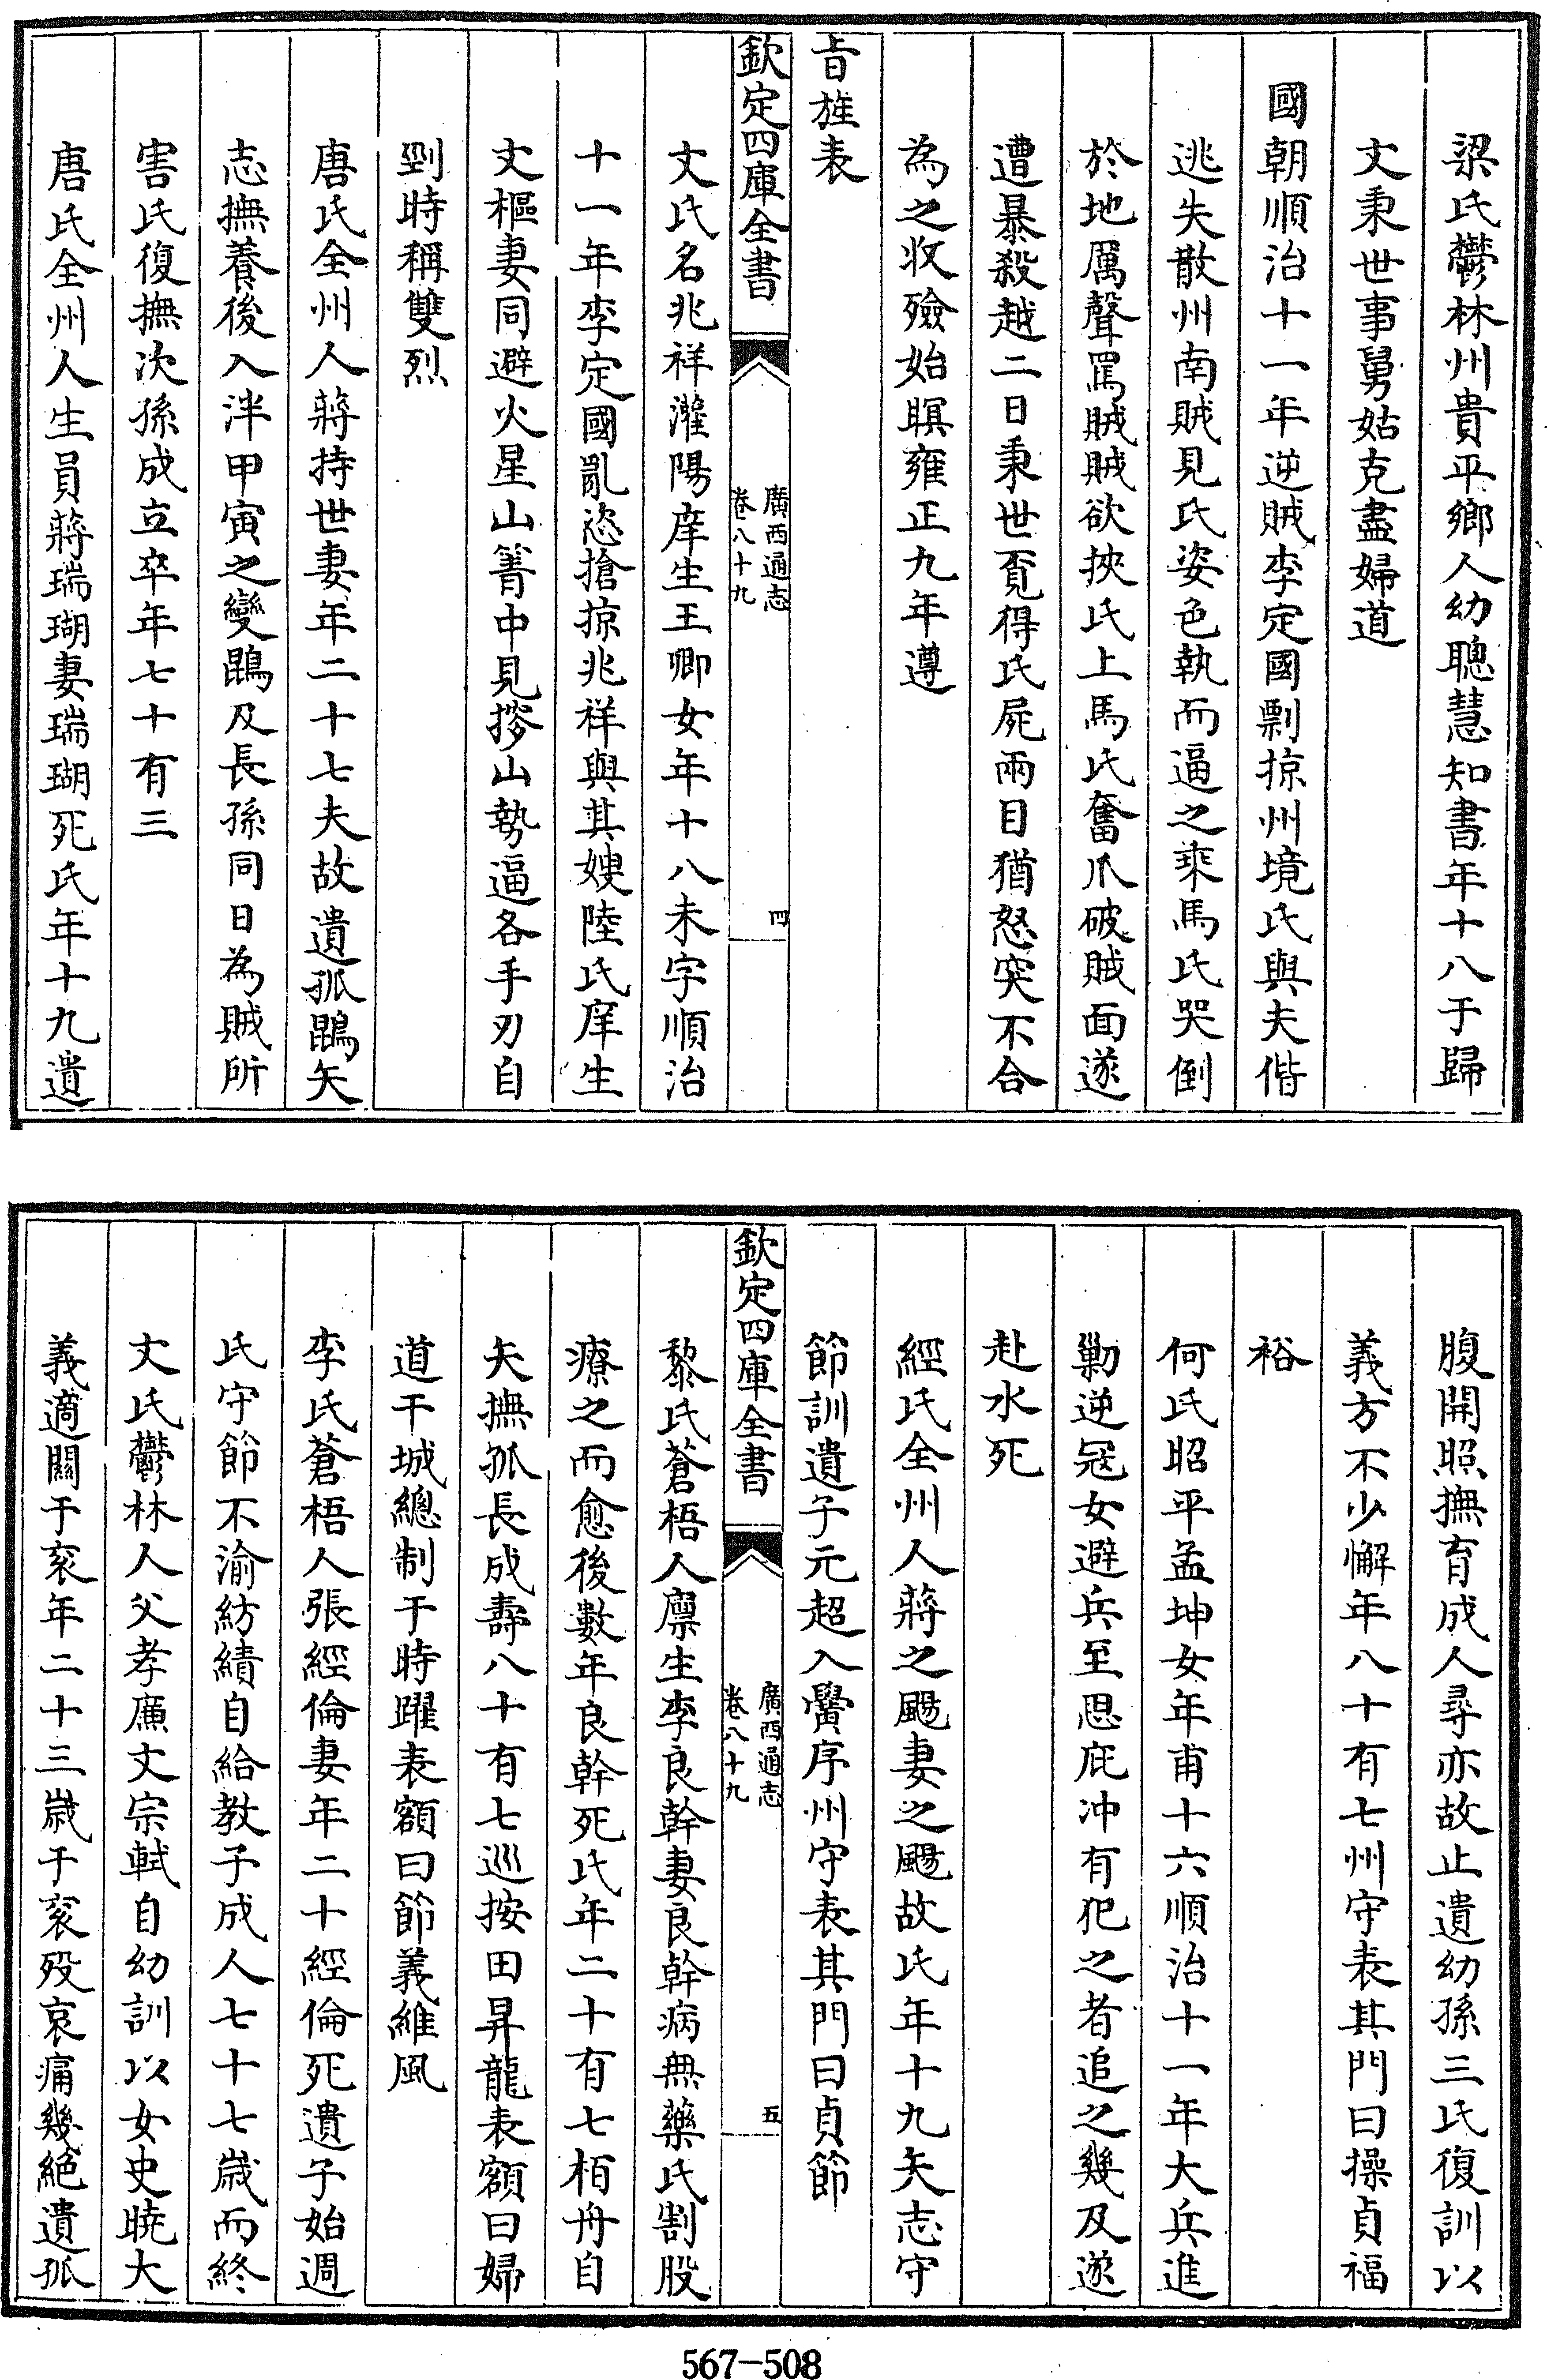 梁氏鬱林州貴平鄉人幼聰慧知書年十八于歸
文秉世事舅姑克盡婦道
國朝順治十一年逆賊李定國剽掠州境氏與夫偕
逃失散州南賊見氏姿色執而逼之乘馬氏哭倒
於地厲聲罵賊賊欲挾氏上馬氏奮爪破賊面遂
遭暴殺越二日秉世覔得氏屍兩目猶怒突不合
為之收殮始瞑雍正九年遵
旨旌表
欽定四庫全書
廣西通志
卷八十九
四
文氏名兆祥灌陽庠生王卿女年十八未字順治
十一年李定國亂恣搶掠兆祥與其嫂陸氏庠生
文樞妻同避火星山箐中見搜山勢逼各手刃自
剄時稱雙烈
唐氏全州人蔣持世妻年二十七夫故遺孤鵾矢
志撫養後入泮甲寅之變鵾及長孫同日為賊所
害氏復撫次孫成立卒年七十有三
唐氏全州人生員蔣瑞瑚妻瑞瑚死氏年十九遺
腹開照撫育成人尋亦故止遺幼孫三氏復訓以
義方不少懈年八十有七州守表其門曰操貞福
裕
何氏昭平孟坤女年甫十六順治十一年大兵進
勦逆寇女避兵至思庇冲有犯之者追之幾及遂
赴水死
經氏全州人蔣之颺妻之颺故氏年十九矢志守
節訓遺子元超入黌序州守表其門曰貞節
欽定四庫全書
廣西通志
卷八十九
五
黎氏蒼梧人廪生李良幹妻良幹病無藥氏割股
療之而愈後數年良幹死氏年二十有七栢舟自
矢撫孤長成壽八十有七巡按田昇龍表額曰婦
道干城總制于時躍表額曰節義維風
李氏蒼梧人張經倫妻年二十經倫死遺子始週
氏守節不渝紡績自給教子成人七十七歲而終
文氏鬱林人父孝廉文宗軾自幼訓以女史曉大
義適關于衮年二十三歲于衮歿哀痛幾絕遺孤
567-508